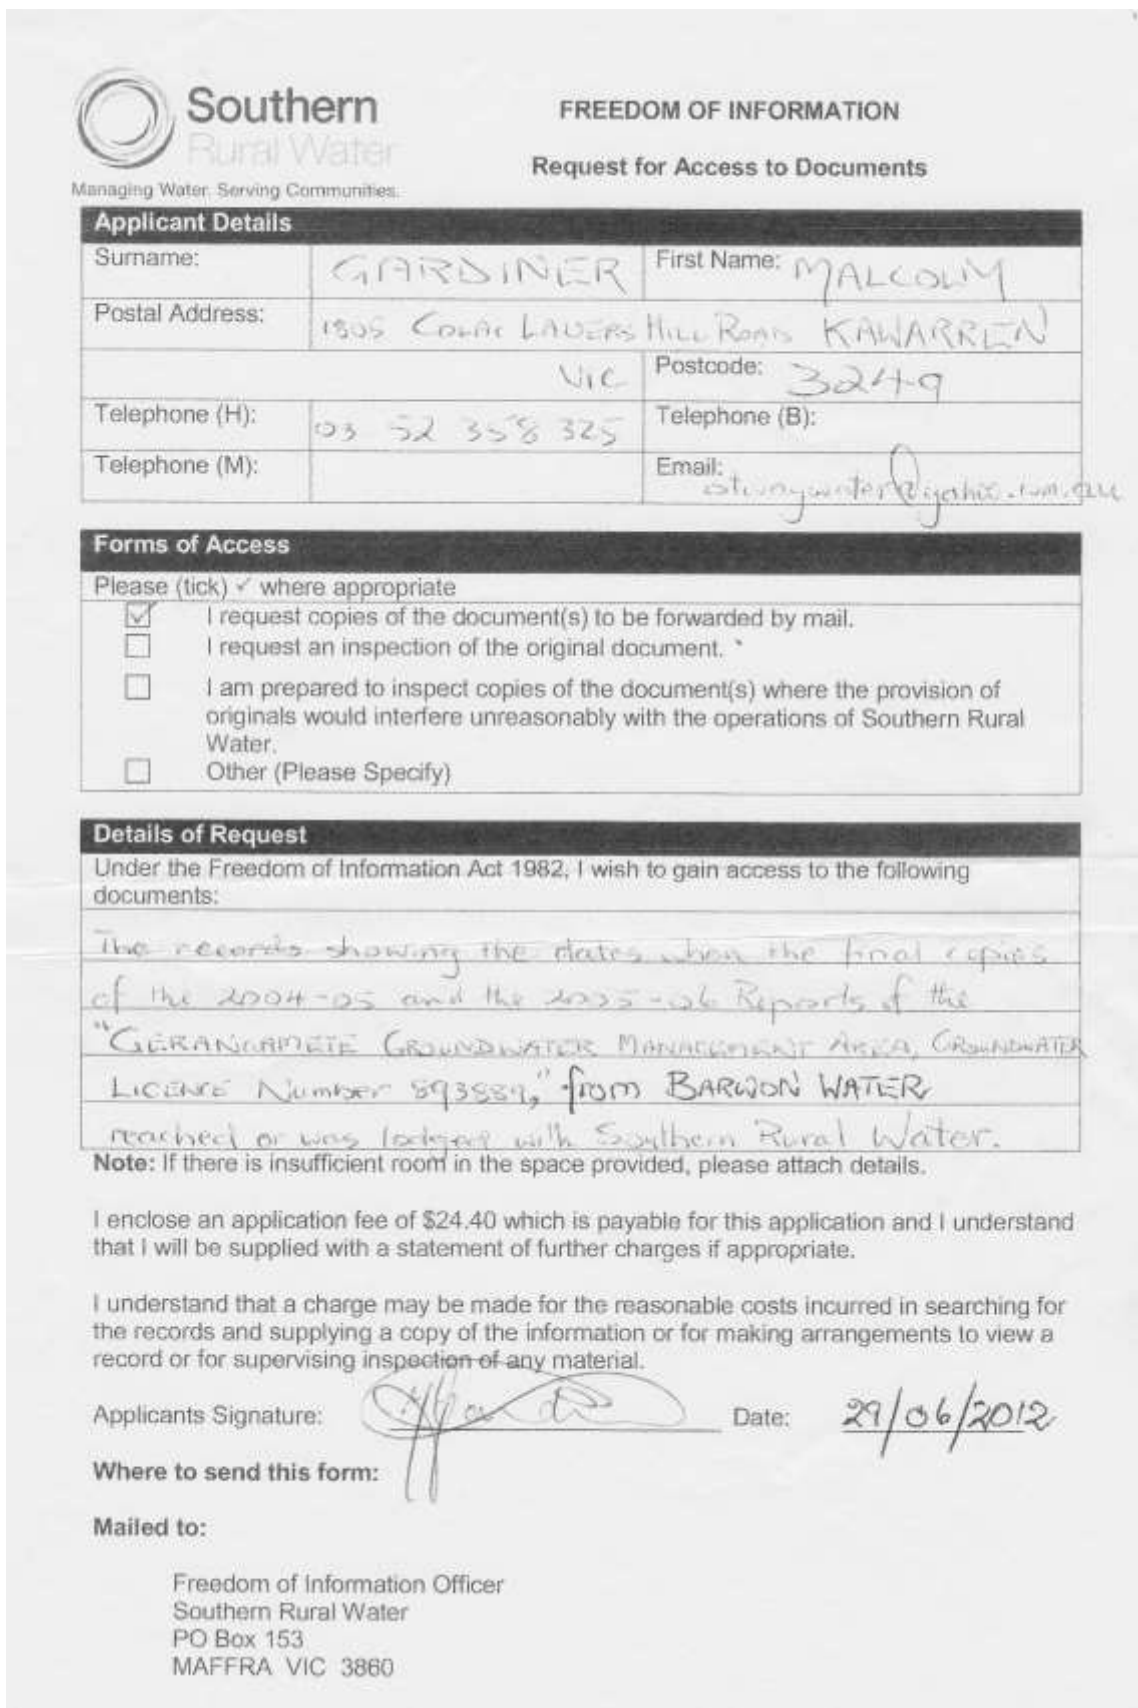 Southern
Rural Water
Managing Water. Serving Communities.
FREEDOM OF INFORMATION
Request for Access to Documents
Applicant Details
Surname: GARDINER First Name: MALCOLM
Postal Address: 1805 COLAC LAVERS HILL ROAD KAWARREN
VIC Postcode: 3249
Telephone (H): 03 52 358 325 Telephone (B):
Telephone (M): Email: otwaywater@yahoo.com.au
Forms of Access
Please (tick) ✓ where appropriate
☑ I request copies of the document(s) to be forwarded by mail.
☐ I request an inspection of the original document. *
☐ I am prepared to inspect copies of the document(s) where the provision of
originals would interfere unreasonably with the operations of Southern Rural
Water.
☐ Other (Please Specify)
Details of Request
Under the Freedom of Information Act 1982, I wish to gain access to the following
documents:
The records showing the dates when the final copies
of the 2004-05 and the 2005-06 Reports of the
"GERANGAMETE GROUNDWATER MANAGEMENT AREA, GROUNDWATER
LICENCE Number 893889," from BARWON WATER
reached or was lodged with Southern Rural Water.
Note: If there is insufficient room in the space provided, please attach details.
I enclose an application fee of $24.40 which is payable for this application and I understand
that I will be supplied with a statement of further charges if appropriate.
I understand that a charge may be made for the reasonable costs incurred in searching for
the records and supplying a copy of the information or for making arrangements to view a
record or for supervising inspection of any material.
Applicants Signature: Date: 29/06/2012
Where to send this form:
Mailed to:
Freedom of Information Officer
Southern Rural Water
PO Box 153
MAFFRA VIC 3860